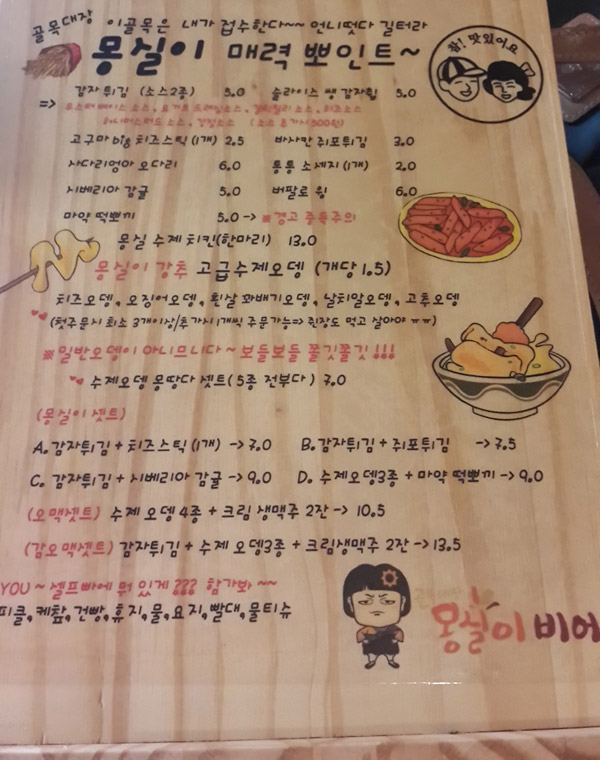 골목대장 이골목은 내가 접수한다~~ 언니떳다 길터라
몽실이 매력 뽀인트~
참! 맛있어요
감자튀김 (소스2종) 5.0 슬라이스 쌩감자칩 5.0
=> 소스
소스, 소스, 소스, 치즈소스
허니머스터드 소스, 소스 (소스 추가시 500원)
고구마 big 치즈스틱 (1개) 2.5 바사칸 쥐포튀김 3.0
사다리엉아 오다리 6.0 통통 소세지 (1개) 2.0
시베리아 감귤 5.0 버팔로 윙 6.0
마약 떡뽀끼 5.0 -> ※경고 중독주의
몽실 수제 치킨(한마리) 13.0
몽실이 강추 고급수제오뎅 (개당 1.5)
치즈오뎅, 오징어오뎅, 흰살 꽈배기오뎅, 날치알오뎅, 고추오뎅
(첫주문시 최소 3개이상/추가시 1개씩 주문가능=> 쥔장도 먹고 살아야 ㅠㅠ)
※일반오뎅이 아니므니다~ 보들보들 쫄깃쫄깃 !!!
수제오뎅 몽땅다 셋트(5종 전부다) 7.0
(몽실이 셋트)
A. 감자튀김 + 치즈스틱 (1개) -> 7.0 B. 감자튀김 + 쥐포튀김 -> 7.5
C. 감자튀김 + 시베리아 감귤 -> 9.0 D. 수제오뎅3종 + 마약 떡뽀끼 -> 9.0
(오맥셋트) 수제 오뎅 4종 + 크림 생맥주 2잔 -> 10.5
(감오맥셋트) 감자튀김 + 수제 오뎅3종 + 크림생맥주 2잔 -> 13.5
YOU ~ 셀프빠에 뭐 있게 ??? 함가봐 ~~
피클, 케찹, 건빵, 휴지, 물, 요지, 빨대, 물티슈
몽실이 비어